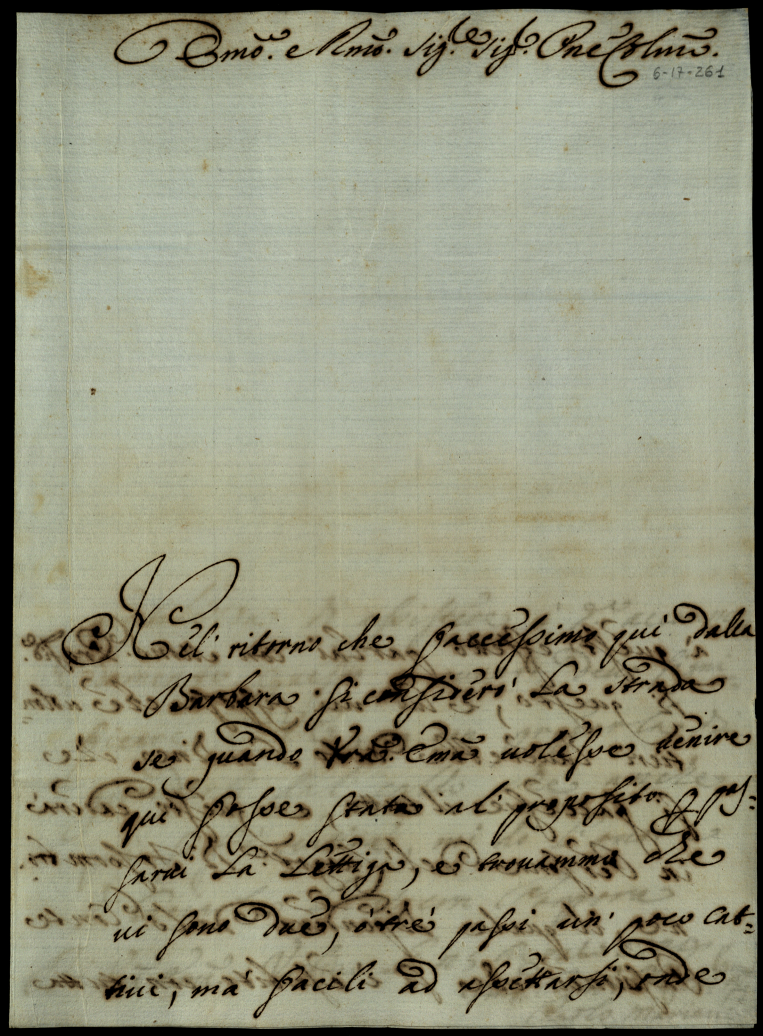 Emõ. e Rmõ. Sig.re Sig.r Pne Colmõ.
6-17-261
Nell' ritorno che faccessimo qui dalla
Barbara si considerò La Strada
se quando Vra. Emã uolesse uenire
qui fosse stata al' proposito p pas=
sarui La Lettiga, e trouammo che
ui sono due, ò trè passi un' poco cat=
tiui, mà facili ad assettarsi, onde